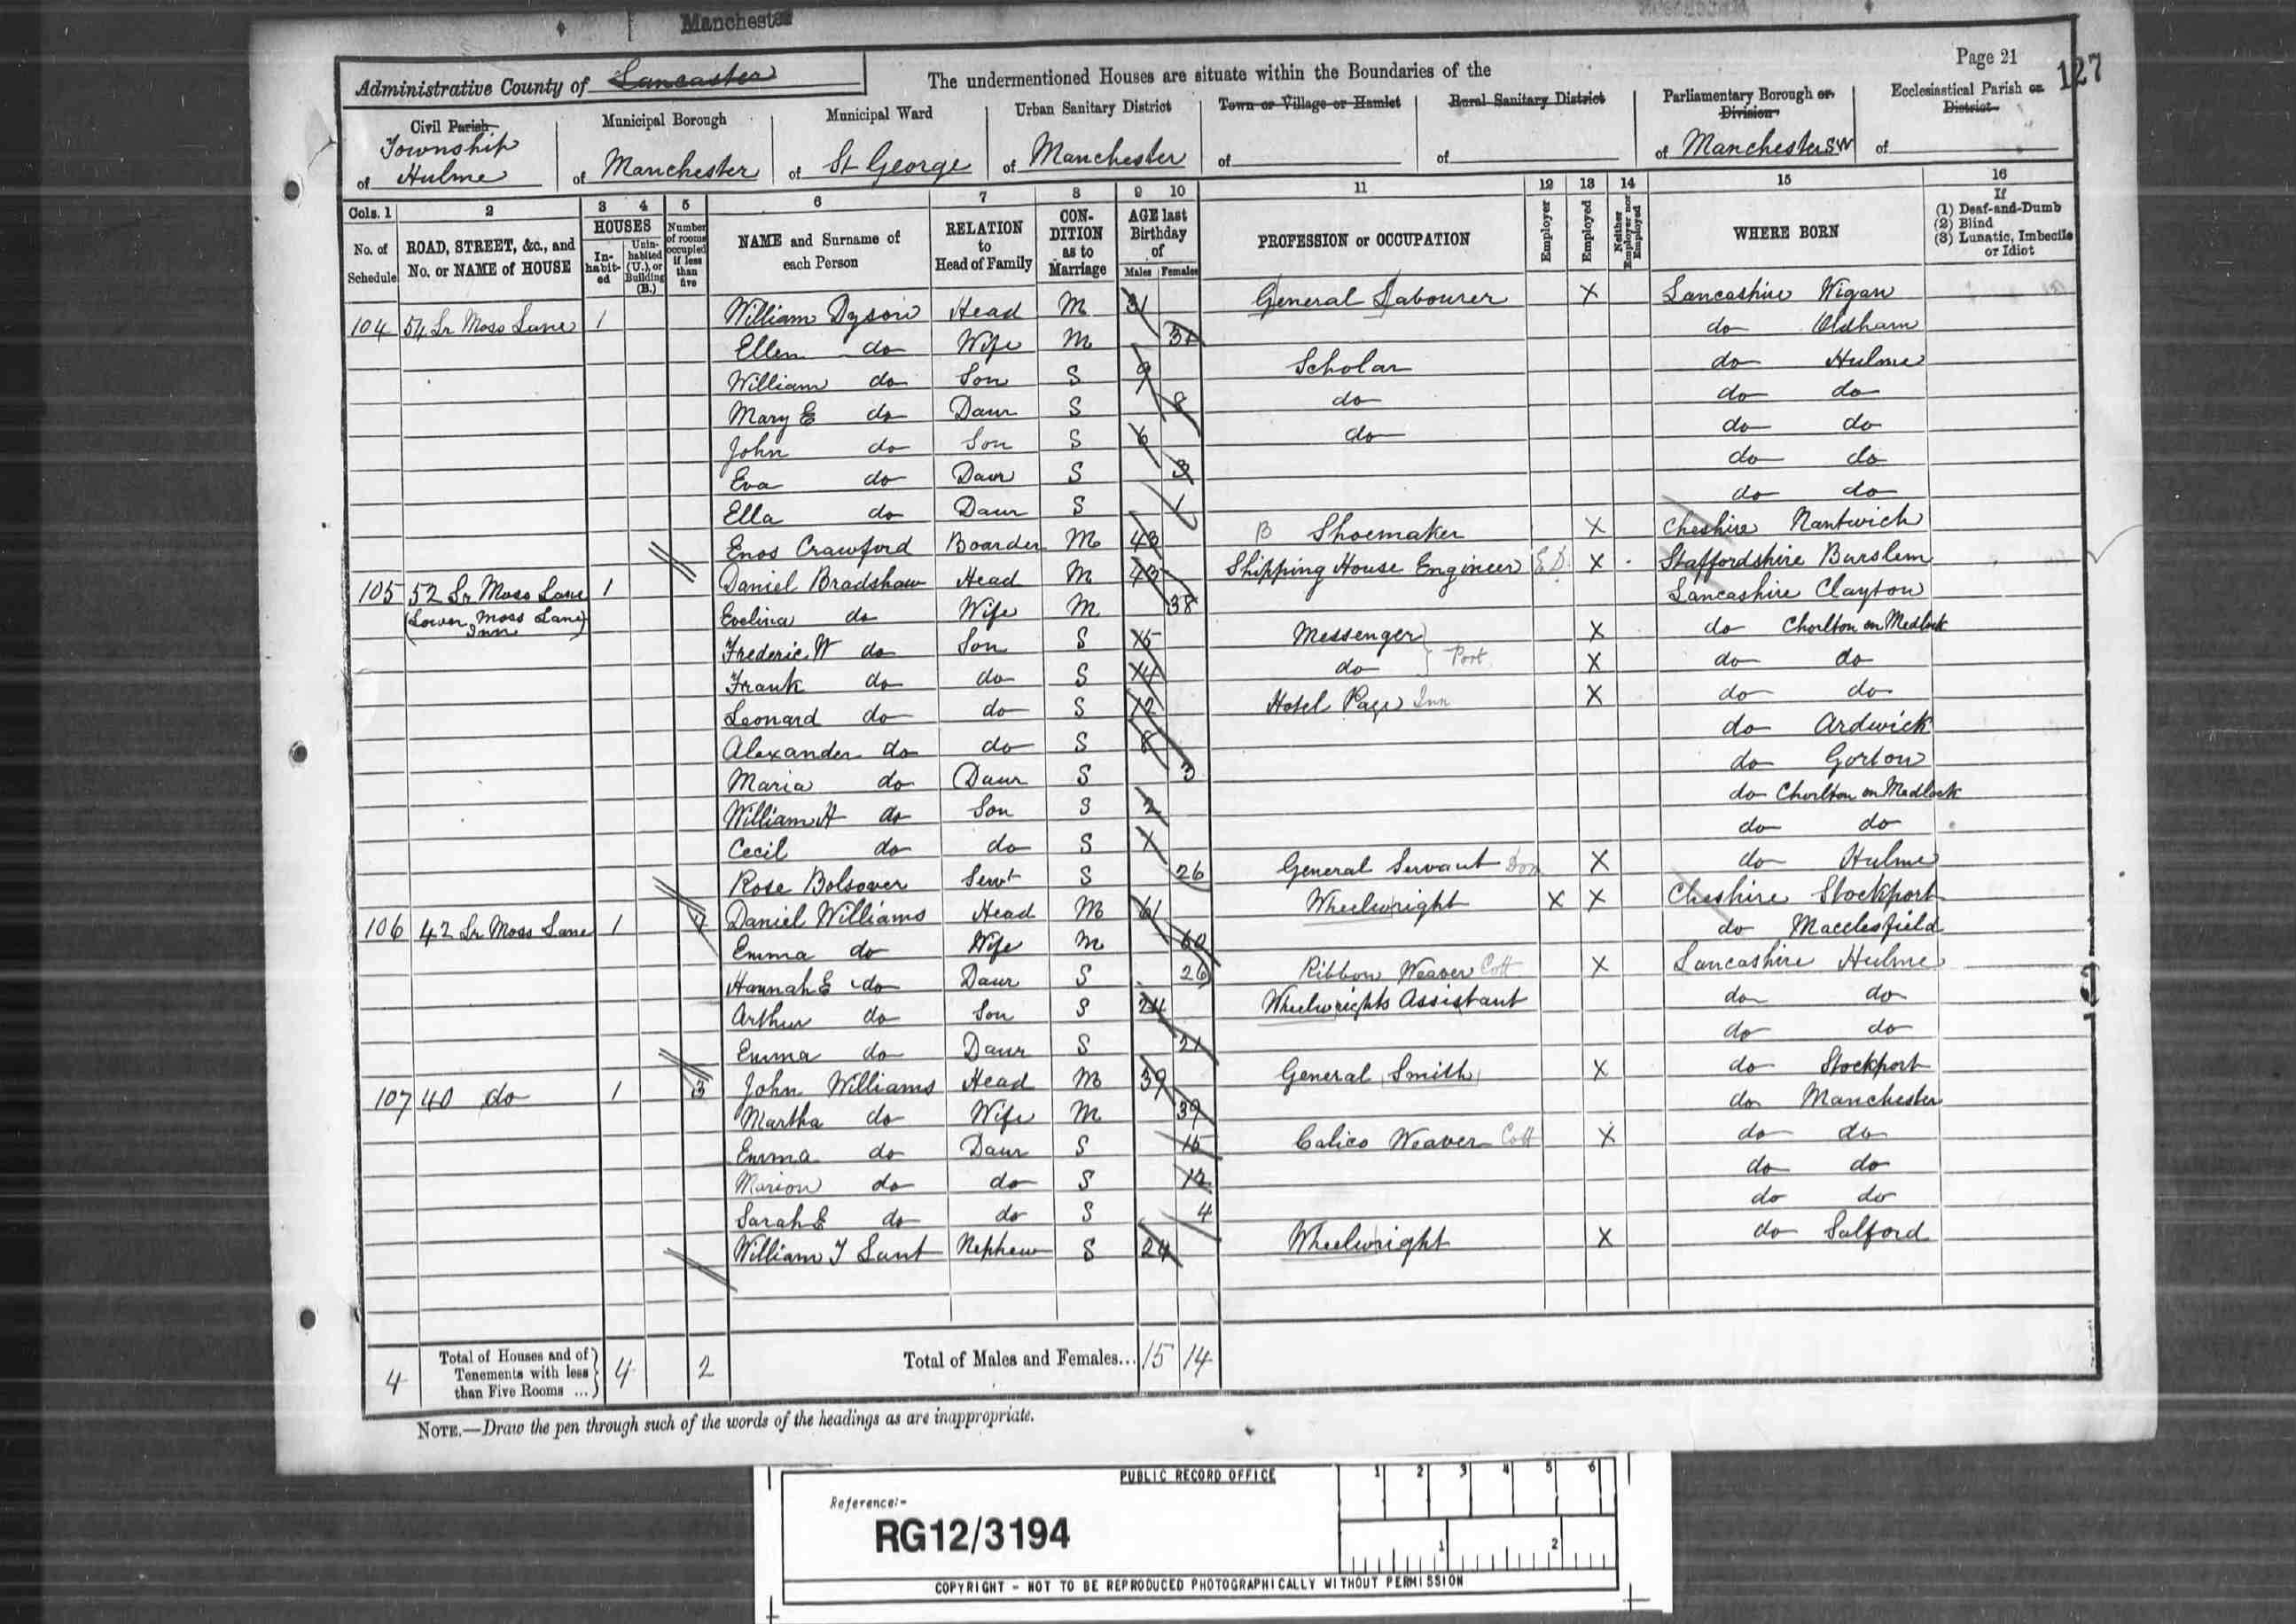 Manchester
Page 21
127
Administrative County of Lancaster
The undermentioned Houses are situate within the Boundaries of the
Civil Parish Township of Hulme
Municipal Borough of Manchester
Municipal Ward of St George
Urban Sanitary District of Manchester
Town or Village or Hamlet of
Rural Sanitary District of
Parliamentary Borough or Division of Manchester SW
Ecclesiastical Parish or District of
Cols. 1 2 3 4 5 6 7 8 9 10 11 12 13 14 15 16
No. of Schedule
ROAD, STREET, &c., and No. or NAME of HOUSE
HOUSES
In-habit-ed
Unin-habited (U.), or Building (B.)
Number of rooms occupied if less than five
NAME and Surname of each Person
RELATION to Head of Family
CON-DITION as to Marriage
AGE last Birthday of
Males Females
PROFESSION or OCCUPATION
Employer
Employed
Neither Employer nor Employed
WHERE BORN
If
(1) Deaf-and-Dumb
(2) Blind
(3) Lunatic, Imbecile or Idiot
104 54 Lr Moss Lane 1 William Dyson Head M 31 General Labourer X Lancashire Wigan
Ellen do Wife M 31 do Oldham
William do Son S 9 Scholar do Hulme
Mary E do Daur S 8 do do do
John do Son S 6 do do do
Eva do Daur S 3 do do
Ella do Daur S 1 do do
Enos Crawford Boarder M 43 B Shoemaker X Cheshire Nantwich
105 52 Lr Moss Lane 1 Daniel Bradshaw Head M 43 Shipping House Engineer X Staffordshire Burslem
(Lower Moss Lane Inn) Evelina do Wife M 38 Lancashire Clayton
Frederic W do Son S 15 Messenger X do Chorlton on Medlock
Frank do do S 14 do Port X do do
Leonard do do S 12 Hotel Page Inn X do do
Alexander do do S 8 do Ardwick
Maria do Daur S 3 do Gorton
William H do Son S 2 do Chorlton on Medlock
Cecil do do S do do
Rose Bolsover Servt S 26 General Servant Dom X do Hulme
106 42 Lr Moss Lane 1 4 Daniel Williams Head M 61 Wheelwright X X Cheshire Stockport
Emma do Wife M 60 do Macclesfield
Hannah E do Daur S 26 Ribbon Weaver Cott X Lancashire Hulme
Arthur do Son S 24 Wheelwrights Assistant do do
Emma do Daur S 21 do do
107 40 do 1 3 John Williams Head M 39 General Smith X do Stockport
Martha do Wife M 39 do Manchester
Emma do Daur S 15 Calico Weaver Cott X do do
Marion do do S 12 do do
Sarah E do do S 4 do do
William T Lant Nephew S 24 Wheelwright X do Salford
4 Total of Houses and of Tenements with less than Five Rooms ... 4 2 Total of Males and Females... 15 14
NOTE.—Draw the pen through such of the words of the headings as are inappropriate.
PUBLIC RECORD OFFICE
1 2 3 4 5 6
Reference:-
RG12/3194
1 2
COPYRIGHT - NOT TO BE REPRODUCED PHOTOGRAPHICALLY WITHOUT PERMISSION